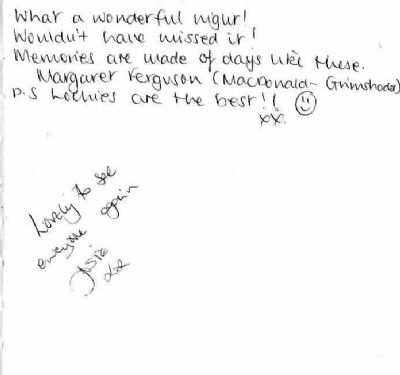 What a wonderful night!
Wouldn't have missed it!
Memories are made of days like these.
Margaret Ferguson (MacDonald - Grimshader)
P.S Lochies are the best!! ☺
xx.
Lovely to see
everyone again
Josie
xx